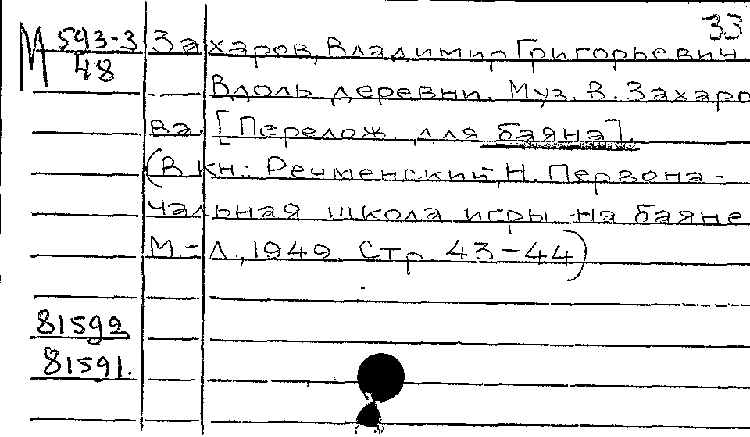 33
М 593-3/48 Захаров, Владимир Григорьевич
Вдоль деревни. Муз. В. Захаро
ва [Перелож. для баяна].
(В кн.: Речменский, Н. Первона-
чальная школа игры на баяне
М-Л, 1949. Стр. 43-44)
81592
81591.